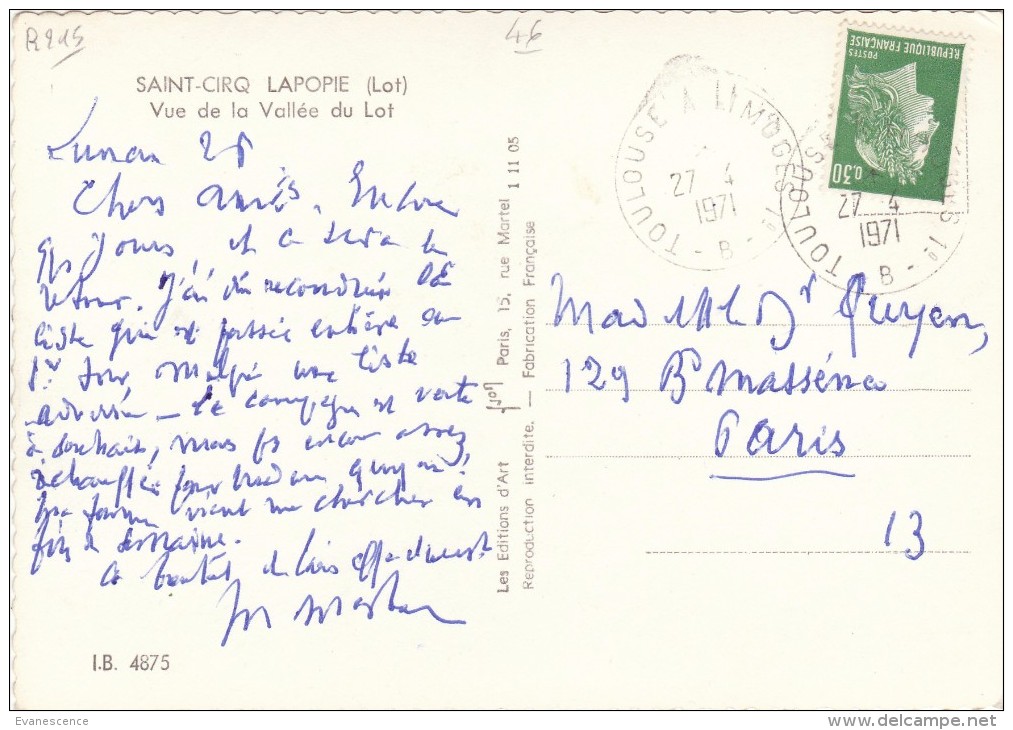 R215
46
SAINT-CIRQ LAPOPIE (Lot)
Vue de la Vallée du Lot
Lunan 25
Chers amis, Encore
qqs jours et ce sera le
retour. J'ai dû reconduire la
liste qui est passée entière au
1er tour, malgré une liste
adverse – La campagne est verte
à souhait, mais pas encore assez
réchauffée pour Madame
Ma femme vient me chercher en
fin de semaine.
A bientôt
Les Editions d'Art YVON Paris, 15, rue Martel 1 11 05
Reproduction interdite. — Fabrication Française
TOULOUSE A LIMOGES 1°
27 4
1971
- B -
TOULOUSE
27 4
1971
B -
POSTES
REPUBLIQUE FRANÇAISE
0,30
129 Bd Masséna
Paris
13
I.B. 4875
Evanescence
www.delcampe.net